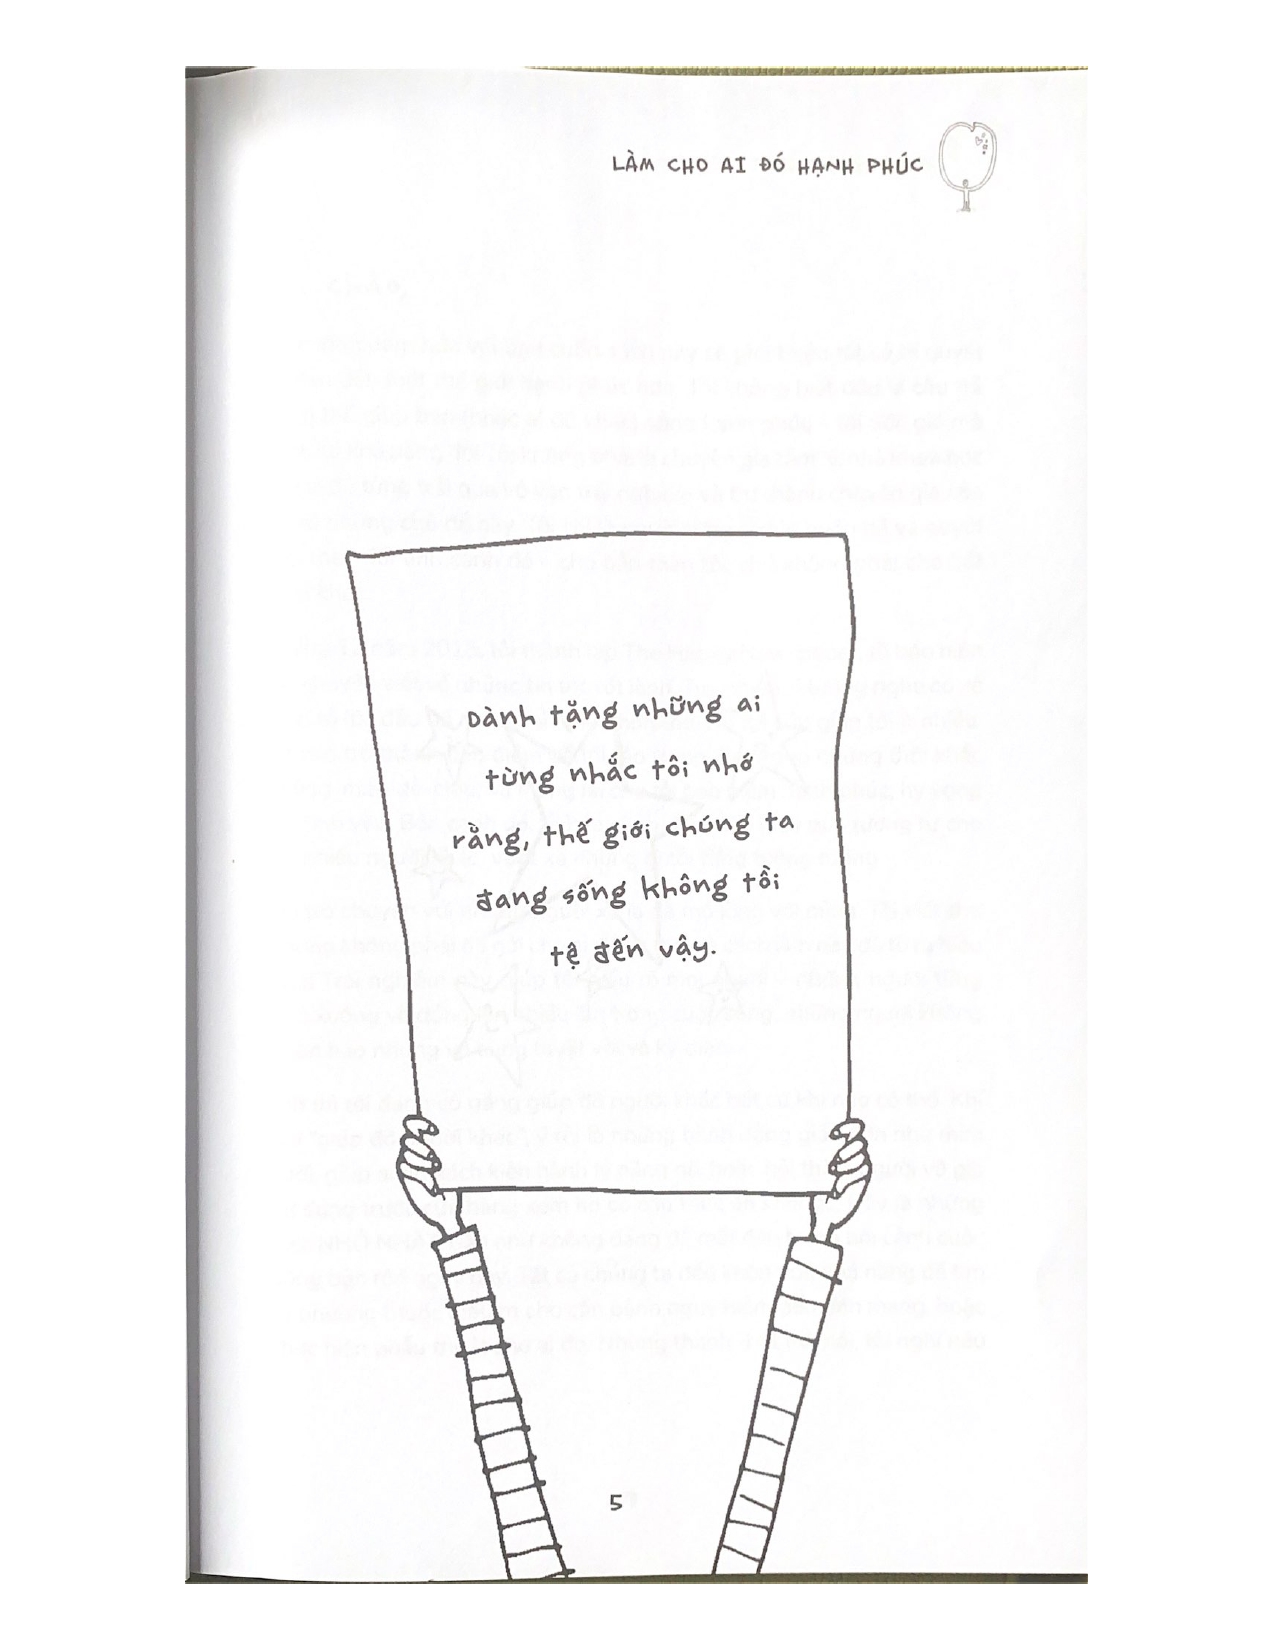 LÀM CHO AI ĐÓ HẠNH PHÚC
Dành tặng những ai
từng nhắc tôi nhớ
rằng, thế giới chúng ta
đang sống không tồi
tệ đến vậy.
5